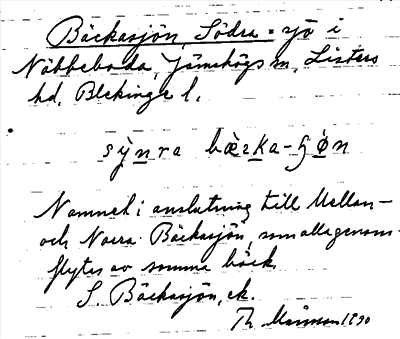 Bäckasjön, Södra = sjö i
Näbbeboda, Jämshögs sn, Listers
hd, Blekinge l.
sỳnra bæ̀rka-ʃø̀n
Namnet i anslutning till Mellan-
och Norra Bäckasjön, som alla genom-
flytes av samma bäck.
S. Bäckasjön, ek.
Th.